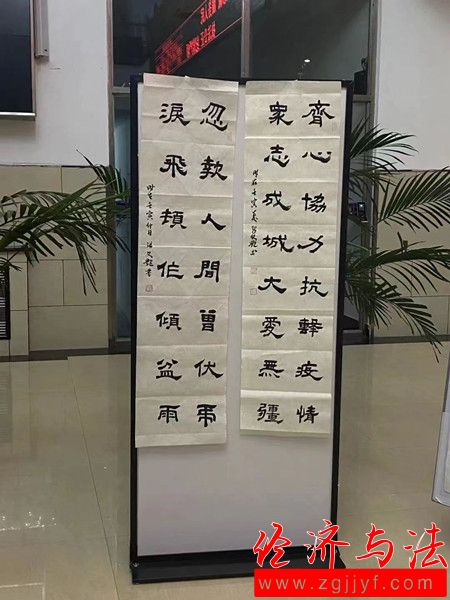 齊心協力抗擊疫情
衆志成城大愛無疆
忽報人間曾伏虎
淚飛頓作傾盆雨
经济与法
www.zgjjyf.com